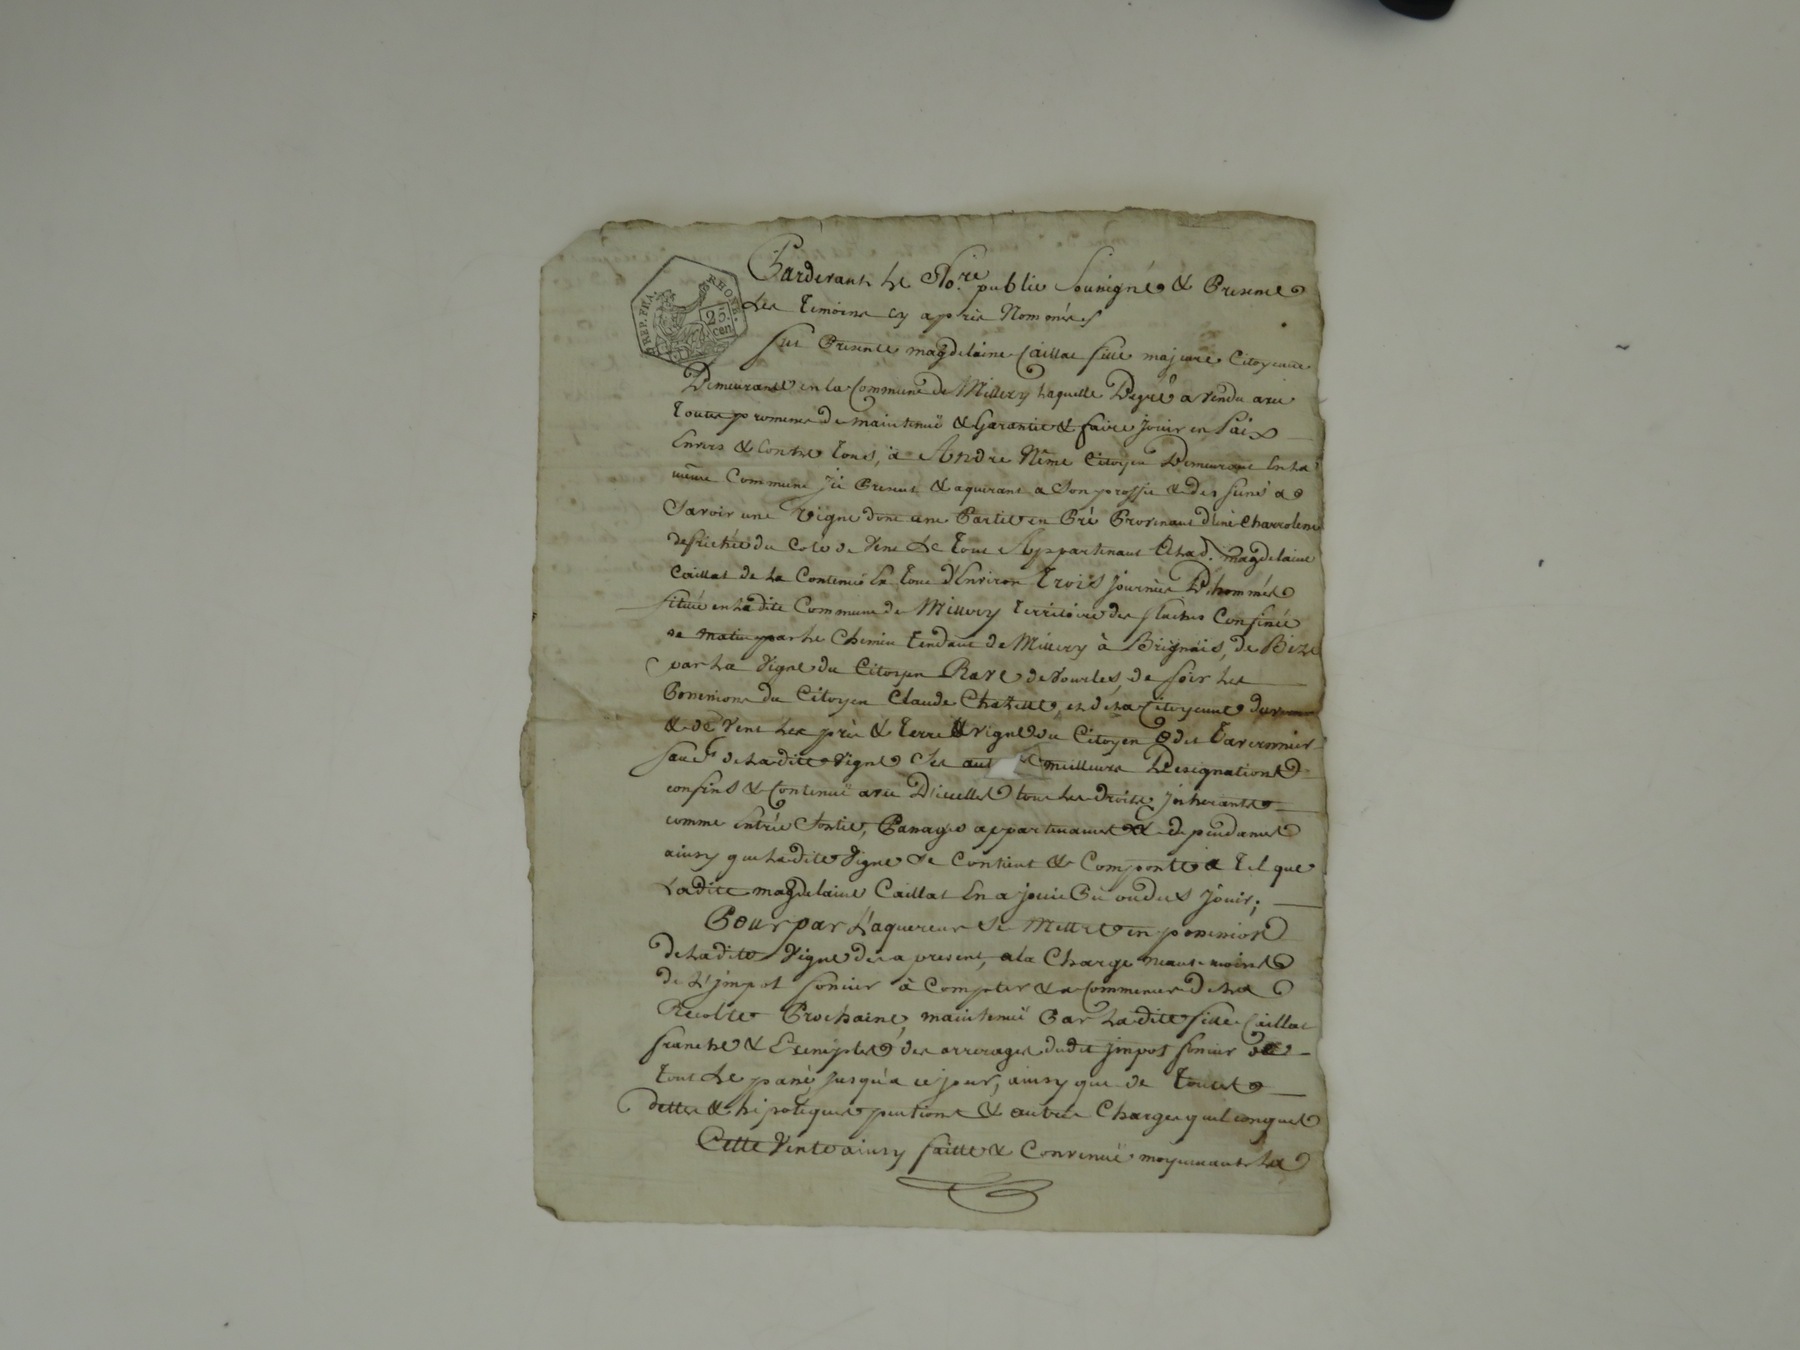 REP. FRA. RHONE.
25 cen
Pardevant Le No.re public Sousigné & Presence
Les temoins cy après Nommés
fut Presente magdelaine Caillat fille majeure Citoyenne
Demeurante en la Commune de Millery Laquelle De gré a vendu avec
toutes promesses de maintenuë & Garantie & faire jouir en Paix
Envers & Contre tous, à André Nême Citoyen Demeurant En La
même Commune ici Present & aquerant a Son proffit & des siens a
Savoir une Vigne dont une Partie en Pré Provenant d'une
defrichée du Coté de Vent Le tout Appartenant A Lad. magdelaine
Caillat de La Contenue En tout d'Environ trois journée D'hommés
située en Ladite Commune de Millery territoire des flaches Confinée
de matin par Le Chemin tendant de Millery à Brignais, de Bize
par La Vigne du Citoyen Rave de Vourles, de soir Les
Possessions du Citoyen Claude et de La Citoyenne
& de Vent Les prés & terre & Vigne du Citoyen Odet tavernnier
sauf de Ladite Vigne Ses meilleurs Designations
confins & Contenuë avec D'icelles tous Les droits jnherants
comme Entrée Sortie, Passages appartenances & dependances
ainsy que Ladite Vigne Se Contient & Comporte & tel que
Ladite magdelaine Caillat En a joui Pu ou du jouir;
Pour par L'aquereur Se Mettre en possession
de Ladite Vigne des a present, a la Charge neantmoins
de L'jmpot foncier à Compter & a Commencer de La
Recolte Prochaine, maintenuë Par Ladite fille Caillat
franche & Exempte des arrerages dudit jmpot foncier de
tout Le passé jusqu'a ce jour, ainsy que de toutes
dettes & hipoteques pentions & autres Charges quelconques
Cette Vente ainsy faitte & Convenuë moyennant La